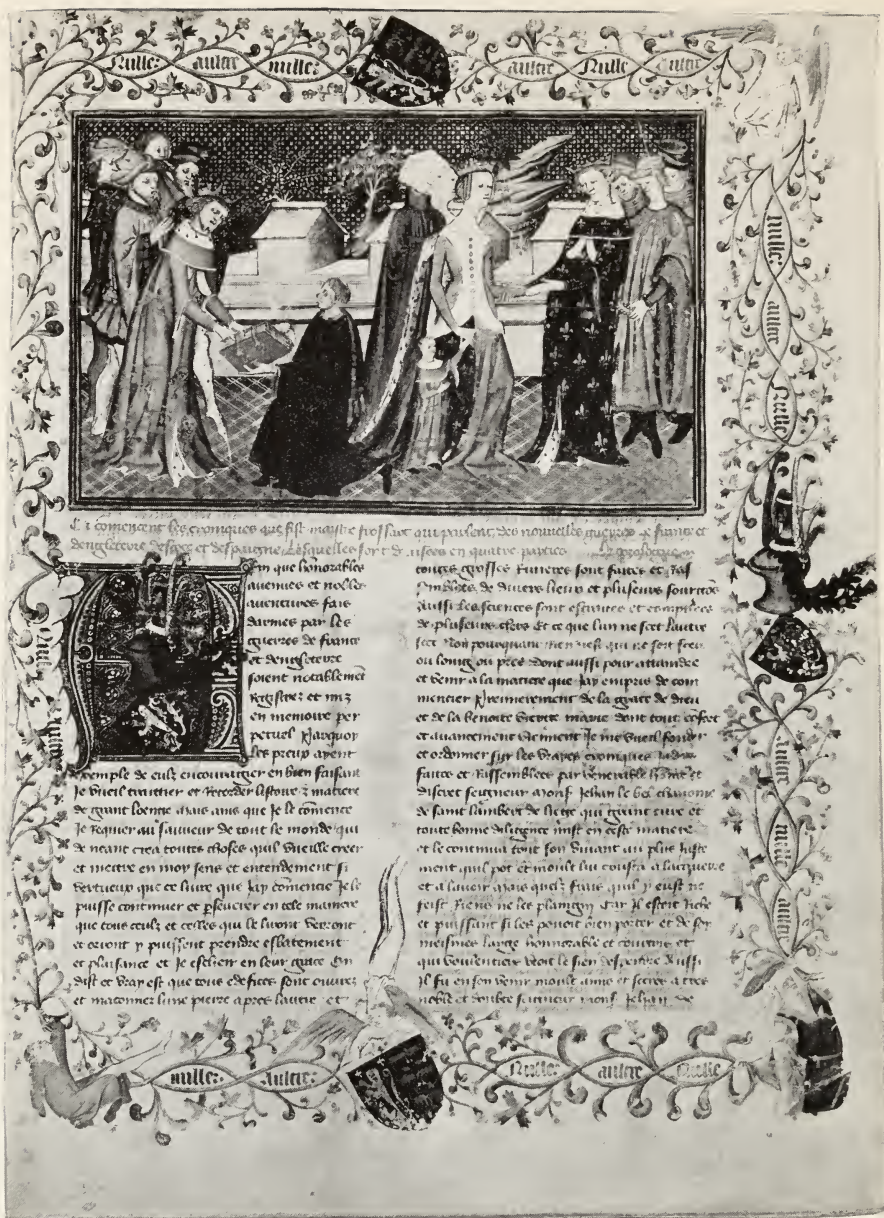 Nulle aultre nulle aultre Nulle aultre
nulle
aultre
Nulle
Ci comencent les croniques que fist maistre froissart qui parlent des nouvelles guerres de france et
dengleterre descoce et despaigne lesquelles sont divisees en quatre parties Le prologue
Afin que honorables
avenues et nobles
aventures fais
darmes par les
guerres de france
et dengleterre
soient notablement
Registrez et mis
en memoire per
petuel Parquoy
les preux ayent
exemple de eulx encouraigier en bien faisant
Je vueil traittier et Recorder listoire & matiere
de grant loenge Mais ains que Je le comence
Je Requier au sauveur de tout le monde qui
de neant crea toutes choses quil vueille creer
et mettre en moy sens et entendement si
vertueux que ce livre que Jay comencie Je le
puisse continuer et pseverer en tele maniere
que tous ceulx et celles qui le liront verront
et orront y puissent prendre esbatement
et plaisance et Je escheir en leur grace On
dist et vray est que tous edefices sont ouvrez
et maconnez lune pierre apres lautre et
toutes grosses Rivieres sont faites et Ras
semblees de divers lieux et plusieurs sourions
Aussi les sciences sont extraites et compilees
de plusieurs clers Et ce que lun ne scet lautre
scet Non pourquant Rien nest qui ne soit sceu
ou loing ou pres dont aussi pour attaindre
et venir a la matiere que Jay empris de com
mencier Premierement de la grace de dieu
et de la benoite vierge marie dont tout confort
et avancement viennent Je me vueil fonder
et ordonner sur les vrayes croniques Jadis
faites et Rassemblees par venerable home et
discret seigneur monsr Jehan le bel chanoine
de saint lambert de liege qui grant cure et
toute bonne diligence mist en ceste matiere
et le continua tout son vivant au plus Juste
ment quil pot et moult lui cousta a lacquerre
et a lavoir Mais quelz frais quil y eust ne
feist Riens ne les plaingny Car Il estoit Riche
et puissant si les povoit bien porter et de soy
meismes large honnorable et courtois et
qui voulentiers veoit le sien despendre Aussi
Il fu en son vivir moult ame et secret a tres
noble et doubte seigneur monsr Jehan de
aultre
nulle
aultre
nulle aultre Nulle aultre Nulle